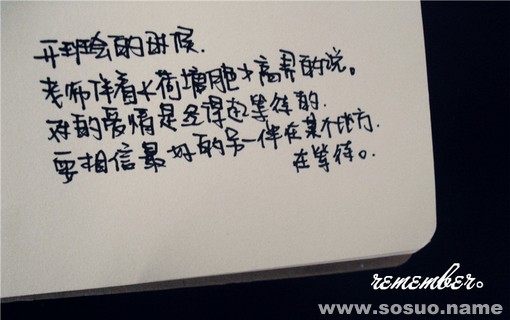 开班会的时候.
老师伴着的说。
对的爱情是经得起等待的.
要相信最好的另一伴在某个地方.
在等待。
remember。
www.sosuo.name